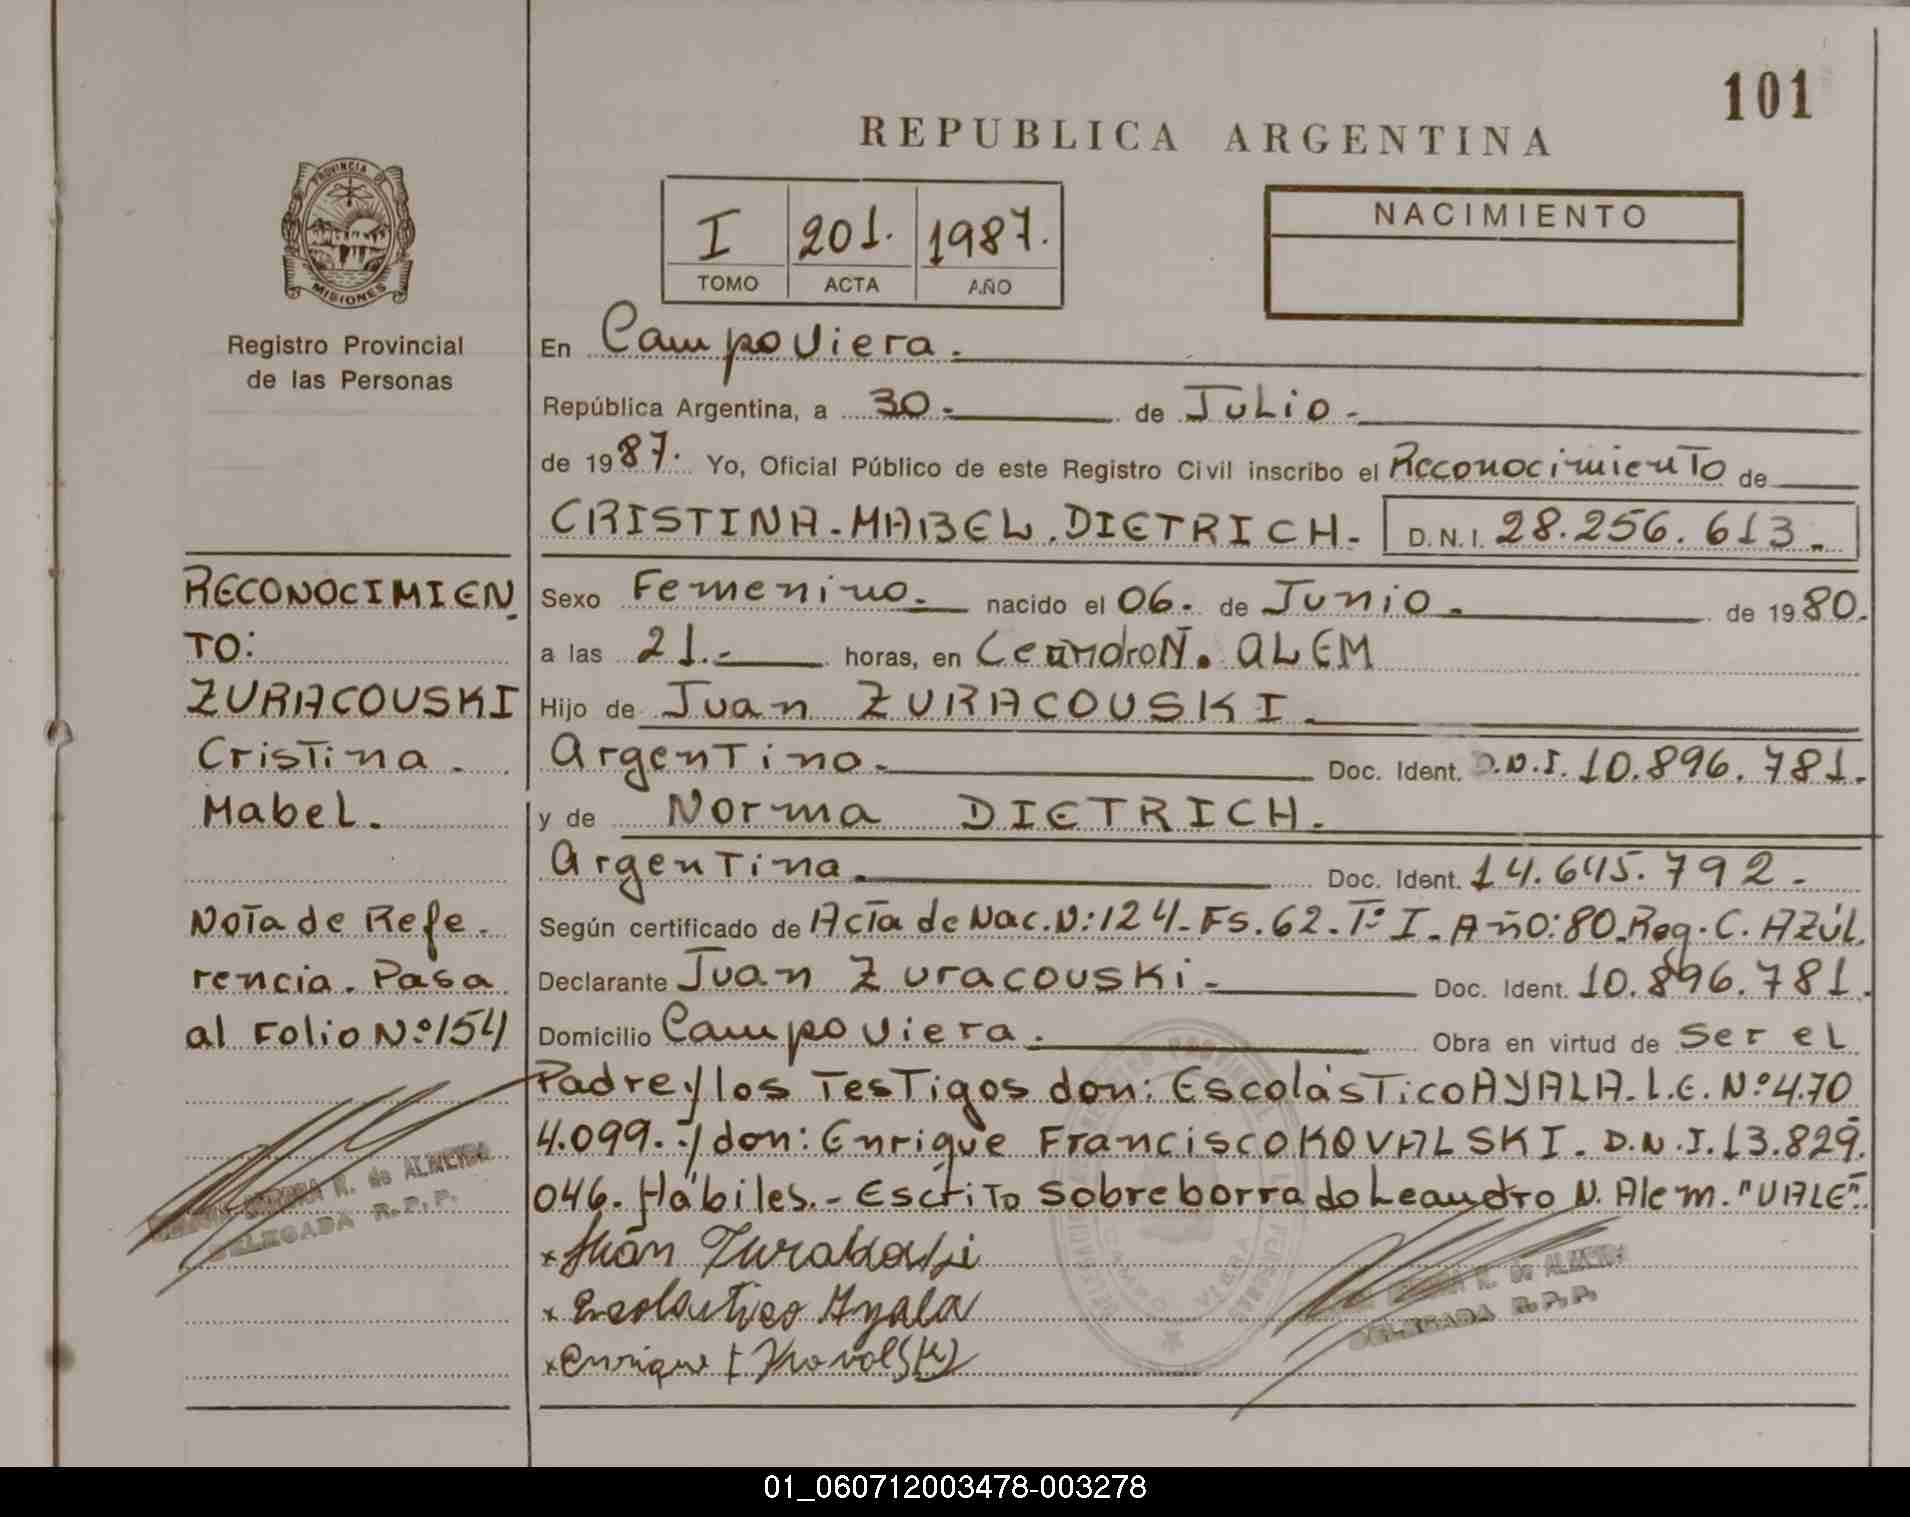 101
REPUBLICA ARGENTINA
PROVINCIA DE
MISIONES
Registro Provincial
de las Personas
I 201. 1987.
TOMO ACTA AÑO
NACIMIENTO
En Campo Viera.
República Argentina, a 30.- de Julio.-
de 1987. Yo, Oficial Público de este Registro Civil inscribo el Reconocimiento de
CRISTINA-MABEL.DIETRICH.- D.N.I. 28.256.613.-
Sexo Femenino.- nacido el 06. de Junio.- de 1980.
a las 21.- horas, en Leandro N. ALEM
Hijo de Juan ZURACOUSKI
Argentino.- Doc. Ident. D.N.I. 10.896.781.
y de Norma DIETRICH.
Argentina. Doc. Ident. 14.645.792.-
Según certificado de Acta de Nac.N:124-Fs.62.Tº I.Año:80.Reg.C.Azúl.
Declarante Juan Zuracouski.- Doc. Ident. 10.896.781.
Domicilio Campo Viera. Obra en virtud de Ser el
Padre y los Testigos don: Escolástico AYALA.L.E.Nº4.70
4.099.-y don: Enrique Francisco KOVALSKI. D.N.I.13.829.
046. Hábiles.- Escrito sobreborrado Leandro N. Alem. "VALE".
x Juan
x Escolastico Ayala
x Enrique F Kovalski
RECONOCIMIEN
TO:
ZURACOUSKI
Cristina.
Mabel.
Nota de Refe.
rencia. Pasa
al Folio Nº154
R. de ALMEIDA
DELEGADA R.P.P.
R. de ALMEIDA
DELEGADA R.P.P.
01_060712003478-003278